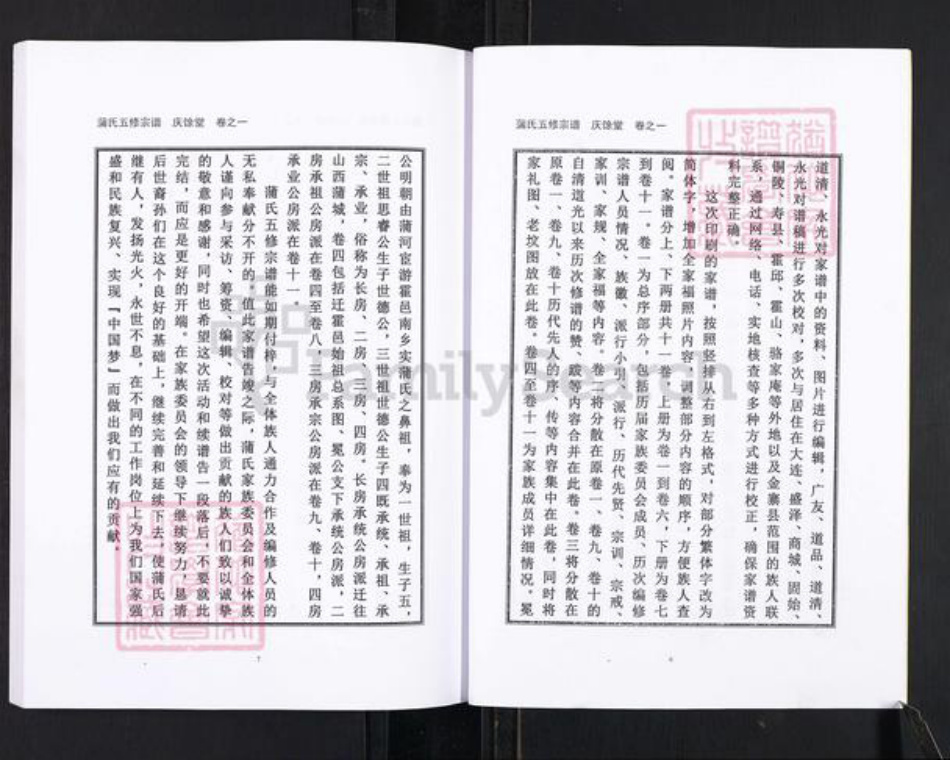 蒲氏五修宗谱 庆馀堂 卷之一
道清、永光对家谱中的资料、图片进行编辑，广友、道品、道清、
永光对谱稿进行多次校对，多次与居住在大连、盛泽、商城、固始、
铜陵、寿县、霍邱、霍山、骆家庵等外地以及金寨县范围的族人联
系，通过网络、电话、实地核查等多种方式进行校正，确保家谱资
料完整正确。
这次印刷的家谱，按照竖排从右到左格式，对部分繁体字改为
简体字，增加全家福照片内容，调整部分内容的顺序，方便族人查
阅。家谱分上、下两册共十一卷，上册为卷一到卷六，下册为卷七
到卷十一。卷一为总序部分，包括历届家族委员会成员、历次编修
宗谱人员情况、族徽、派行小引、派行、历代先贤、宗训、宗戒、
家训、家规、全家福等内容。卷二将分散在原卷一、卷九、卷十的
自清道光以来历次修谱的赞、跋等内容合并在此卷。卷三将分散在
原卷一、卷九、卷十历代先人的序、传等内容集中在此卷，同时将
家礼图、老坟图放在此卷。卷四至卷十一为家族成员详细情况。冕
六
蒲氏五修宗谱 庆馀堂 卷之一
公明朝由蒲河宦游霍邑南乡实蒲氏之鼻祖，奉为一世祖，生子五，
二世祖思睿公生子世德公，三世祖世德公生子四既承统、承祖、承
宗、承业，俗称为长房、二房、三房、四房。长房承统公房派迁往
山西蒲城，卷四包括迁霍邑始祖总系图、冕公支下承统公房派，二
房承祖公房派在卷四至卷八，三房承宗公房派在卷九、卷十，四房
承业公房派在卷十一。
蒲氏五修宗谱能如期付梓，与全体族人通力合作及编修人员的
无私奉献分不开的。值此家谱告竣之际，蒲氏家族委员会和全体族
人谨向参与采访、筹资、编辑、校对等做出贡献的族人们致以诚挚
的敬意和感谢，同时也希望这次活动和续谱告一段落后，不要就此
完结，而应是更好的开端。在家族委员会的领导下继续努力，恳请
后世裔孙们在这个良好的基础上，继续完善和延续下去，使蒲氏后
继有人，发扬光火，永世不息，在不同的工作岗位上为我们国家强
盛和民族复兴、实现『中国梦』而做出我们应有的贡献。
七
FamilySearch